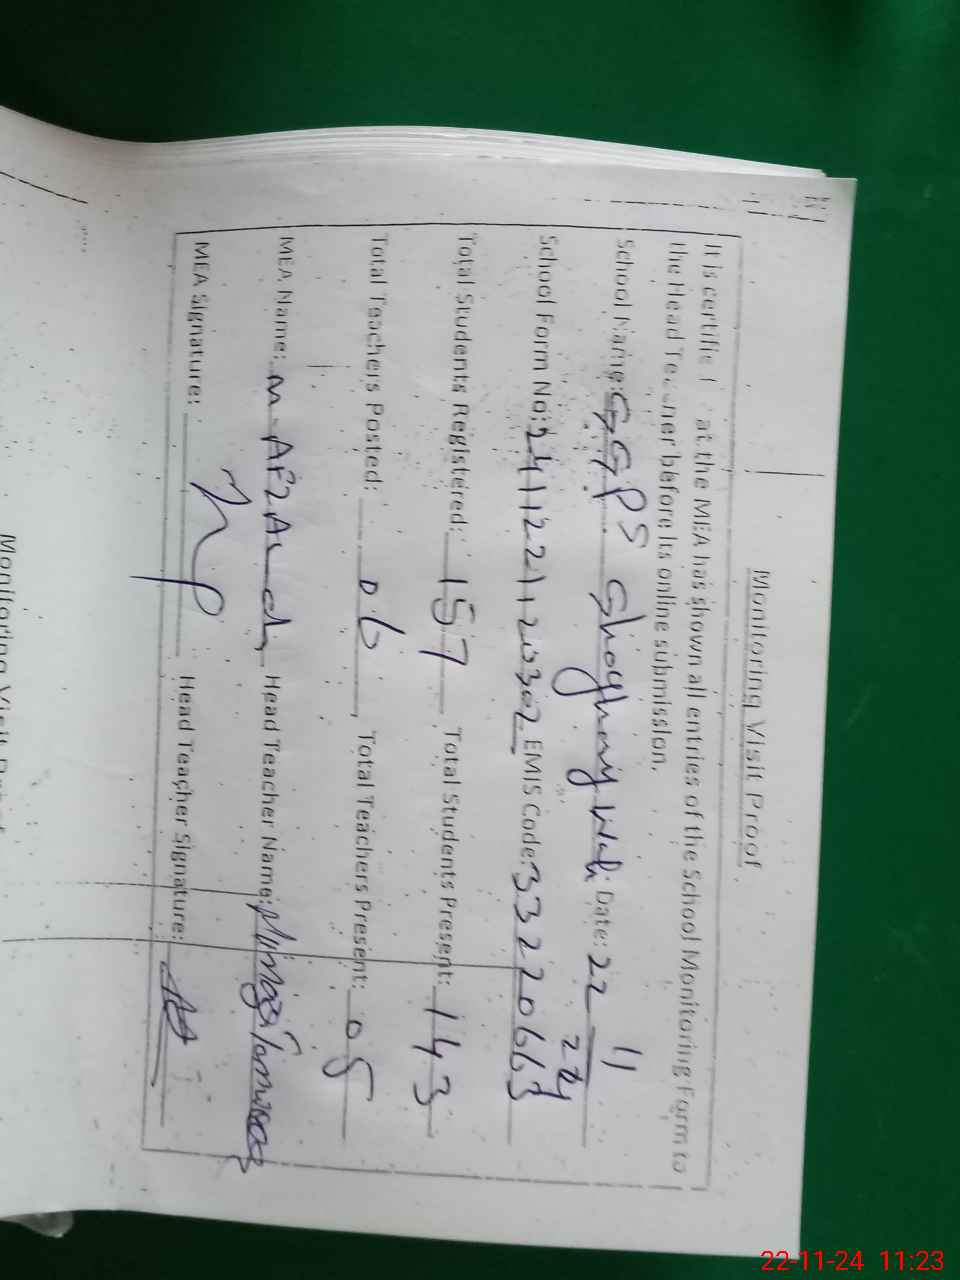 Monitoring Visit Proof
It is certifie at the MEA has shown all entries of the School Monitoring Form to
the Head Te ner before its online submission.
School Name: GGPS Date: 22 11 24
School Form No: 24112211 20302 EMIS Code: 33220663
Total Students Registered: 157 Total Students Present: 143
Total Teachers Posted: 06, Total Teachers Present: 05
MEA Name: M Head Teacher Name:
MEA Signature: Head Teacher Signature:
Monitoring Visit
22-11-24 11:23